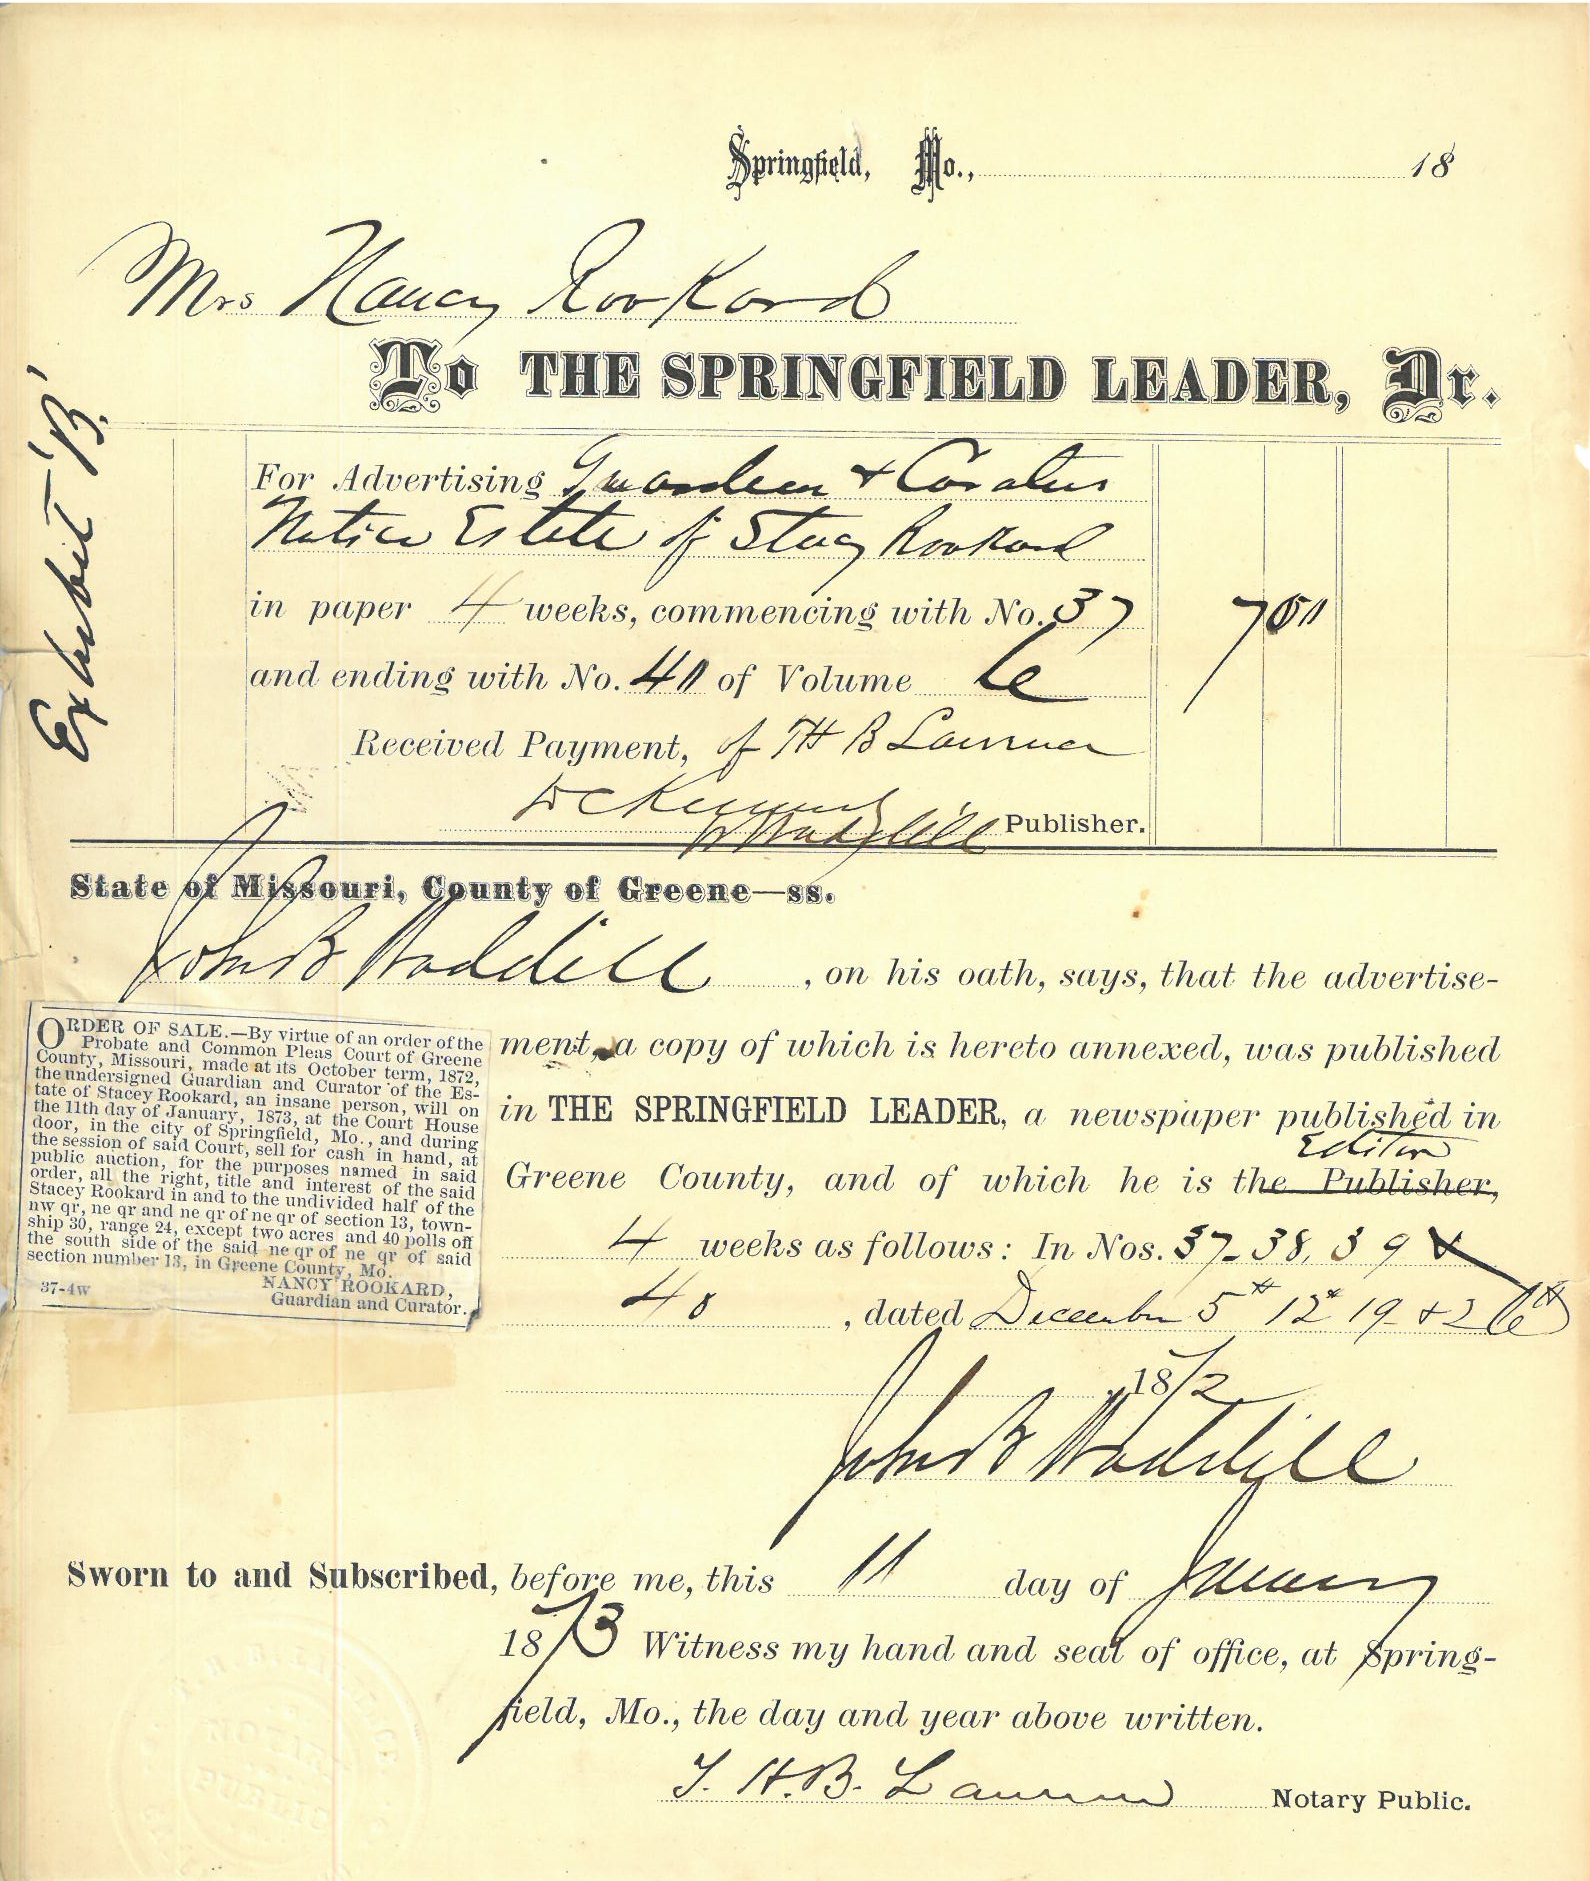 Springfield, Mo., 18
Mrs Nancy Rookard
To THE SPRINGFIELD LEADER, Dr.
Exhibit 'B.'
For Advertising Guardian & Curators
Notice Estate of Stacy Rookard
in paper 4 weeks, commencing with No. 37
7 50
and ending with No. 40 of Volume 6
Received Payment, of T H B Lawrence
D C Kennedy
Waddill Publisher.
State of Missouri, County of Greene—ss.
John B Waddill, on his oath, says, that the advertise-
ment, a copy of which is hereto annexed, was published
in THE SPRINGFIELD LEADER, a newspaper published in
Editor
Greene County, and of which he is the Publisher,
4 weeks as follows: In Nos. 37-38, 39 &
40, dated December 5th 12th 19- & 26th
1872
John B Waddill
ORDER OF SALE.—By virtue of an order of the
Probate and Common Pleas Court of Greene
County, Missouri, made at its October term, 1872,
the undersigned Guardian and Curator of the Es-
tate of Stacey Rookard, an insane person, will on
the 11th day of January, 1873, at the Court House
door, in the city of Springfield, Mo., and during
the session of said Court, sell for cash in hand, at
public auction, for the purposes named in said
order, all the right, title and interest of the said
Stacey Rookard in and to the undivided half of the
nw qr, ne qr and ne qr of ne qr of section 13, town-
ship 30, range 24, except two acres and 40 polls off
the south side of the said ne qr of ne qr of said
section number 13, in Greene County, Mo.
NANCY ROOKARD,
37-4w Guardian and Curator.
Sworn to and Subscribed, before me, this 11 day of January
1873 Witness my hand and seal of office, at Spring-
field, Mo., the day and year above written.
T. H. B. Lawrence Notary Public.